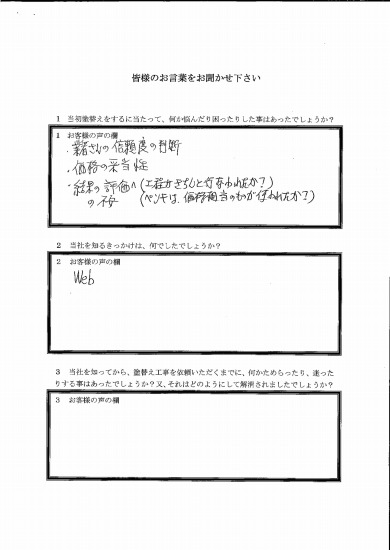 皆様のお言葉をお聞かせ下さい
1 当初塗替えをするに当たって、何か悩んだり困ったりした事はあったでしょうか?
1 お客様の声の欄
・業者さんの信頼度の判断
・価格の妥当性
・結果の評価への不安
(工程がきちんと行なわれたか?)
(ペンキは、価格相当のものが使われたか?)
2 当社を知るきっかけは、何でしたでしょうか?
2 お客様の声の欄
Web
3 当社を知ってから、塗替え工事を依頼いただくまでに、何かためらったり、迷った
りする事はあったでしょうか?又、それはどのようにして解消されましたでしょうか?
3 お客様の声の欄